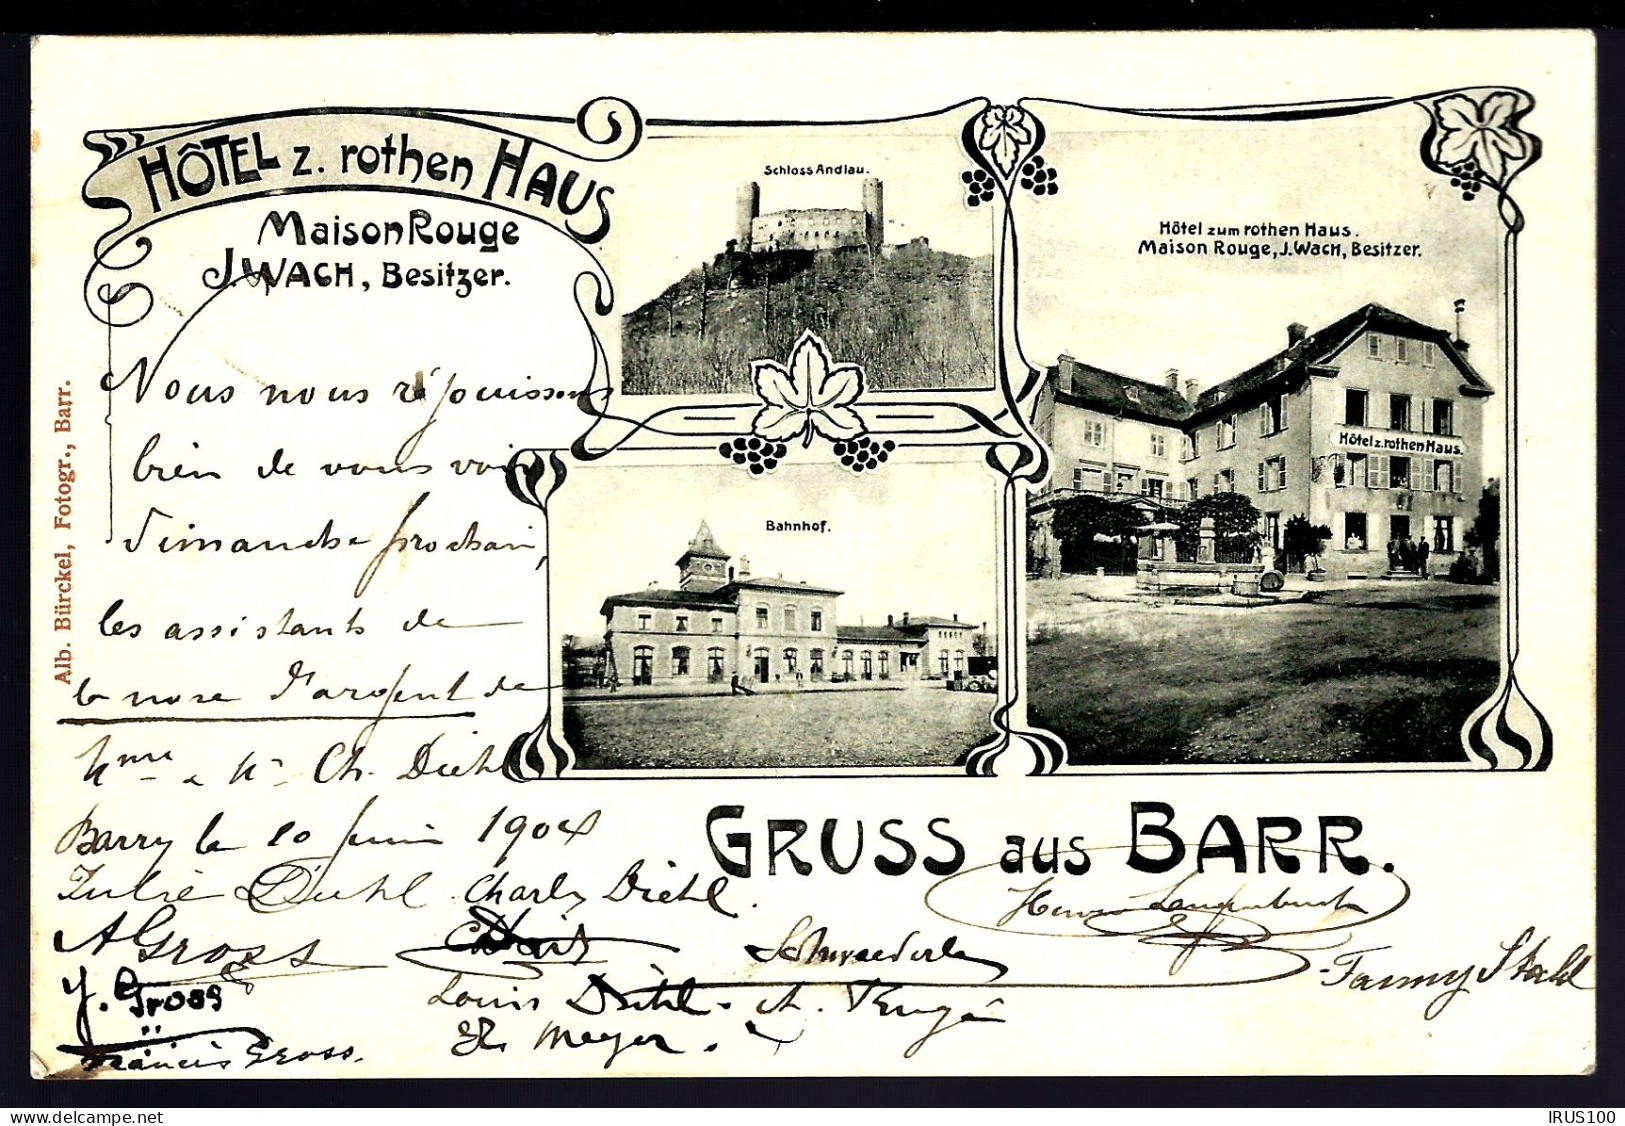 HÔTEL z. rothen HAUS
Maison Rouge
J. WACH, Besitzer.
Schloss Andlau.
Hôtel zum rothen Haus.
Maison Rouge, J. Wach, Besitzer.
Hôtel z. rothen Haus.
Bahnhof.
Alb. Bürckel, Fotogr., Barr.
Nous nous réjouissons
bien de vous voir
Dimanche prochain,
les assistants de
la noce d'argent de
Mme & Mr Ch. Diehl
Barr le 10 Juin 1904
GRUSS aus BARR.
Julie Diehl Charles Diehl.
A Gross
Schwaederle
Fanny Stahl
J. Gross
Louis Diehl
Meyer.
Francis Gross.
delcampe.net
IRUS100